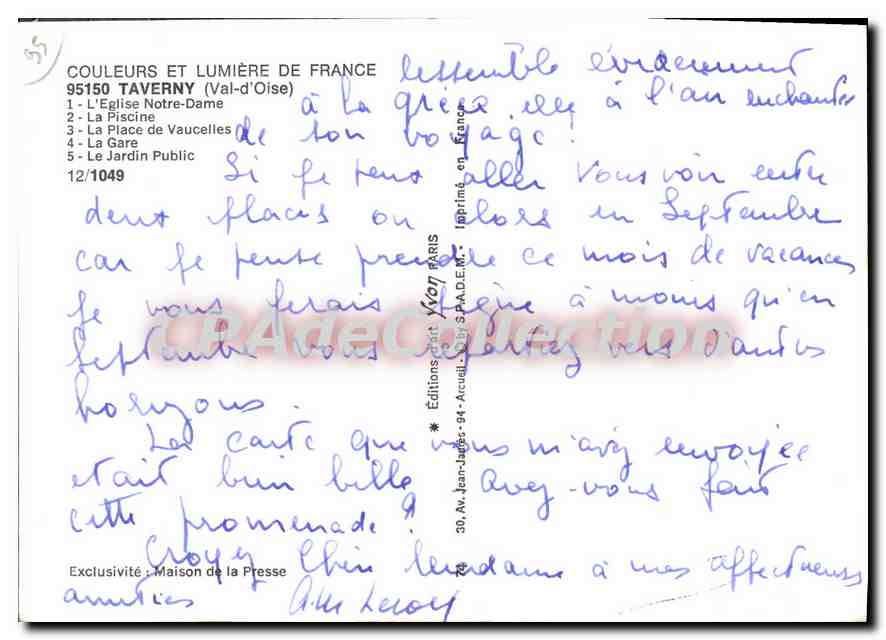 COULEURS ET LUMIÈRE DE FRANCE
95150 TAVERNY (Val-d'Oise)
1 - L'Eglise Notre-Dame
2 - La Piscine
3 - La Place de Vaucelles
4 - La Gare
5 - Le Jardin Public
12/1049
ressemble évidemment
à la grèce. elle a l'air enchantée
de son voyage !
Si je peux aller vous voir entre
deux places ou alors en Septembre
car je pense prendre ce mois de vacances
je vous ferais signe à moins qu'en
Septembre vous repartiez vers d'autres
horizons.
La carte que vous m'avez envoyée
etait bien belle. Avez-vous fait
cette promenade ?
Croyez Chère Madame à mes affectueuses
amitiés A.M Leroy
Exclusivité : Maison de la Presse
✷ Éditions d'art Yvon PARIS
30, Av. Jean-Jaurès - 94 - Arcueil - © by S.P.A.D.E.M. - Imprimé en France
74
CPAdeCollection